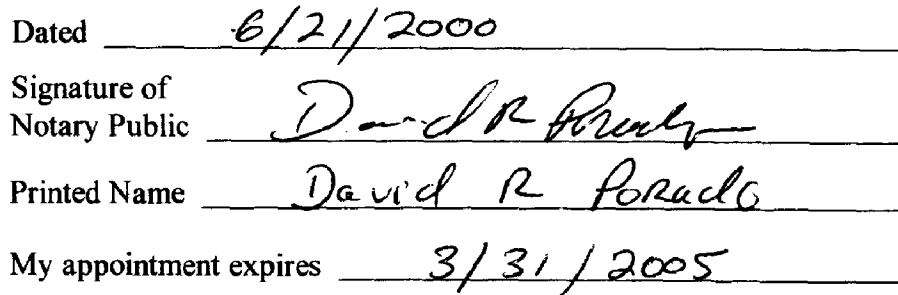 Dated 6/21/2000
Signature of
Notary Public David R Porada
Printed Name David R Porada
My appointment expires 3/31/2005